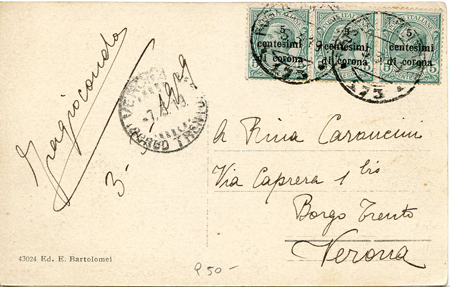 5 centesimi di corona
5 centesimi di corona
5 centesimi di corona
173
173
VERONA
7.
A Rina Caroncini
Via Caprera 1 bis
Borgo Trento
Verona
3-
43024 Ed. E. Bartolomei
P 50-